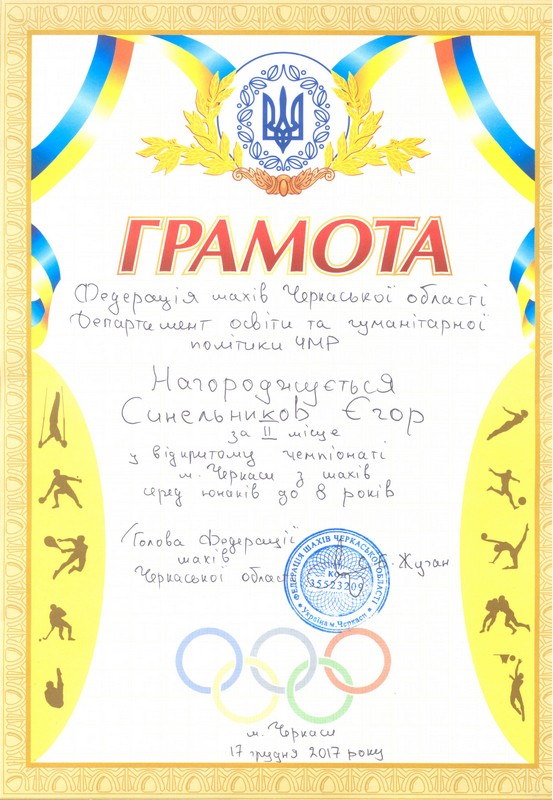 ГРАМОТА
Федерація шахів Черкаської області
Департамент освіти та гуманітарної
політики ЧМР
Нагороджується
Синельников Єгор
за II місце
у відкритому чемпіонаті
м. Черкаси з шахів
серед юнаків до 8 років
Голова Федерації
шахів
Черкаської області
Жуган
ФЕДЕРАЦІЯ ШАХІВ ЧЕРКАСЬКОЇ ОБЛАСТІ
КОД
35523209
Україна м.Черкаси
м. Черкаси
17 грудня 2017 року